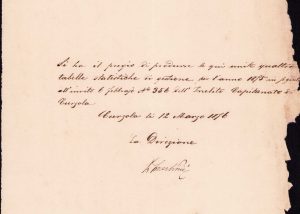 Si ha il pregio di produrre le qui unite quattro
tabelle statistiche di gestione per l'anno 1875 in
all'invito 6 febbrajo N° 356 dell' Inclito Capitanato di
Curzola
Curzola li 12 Marzo 1876
La Direzione